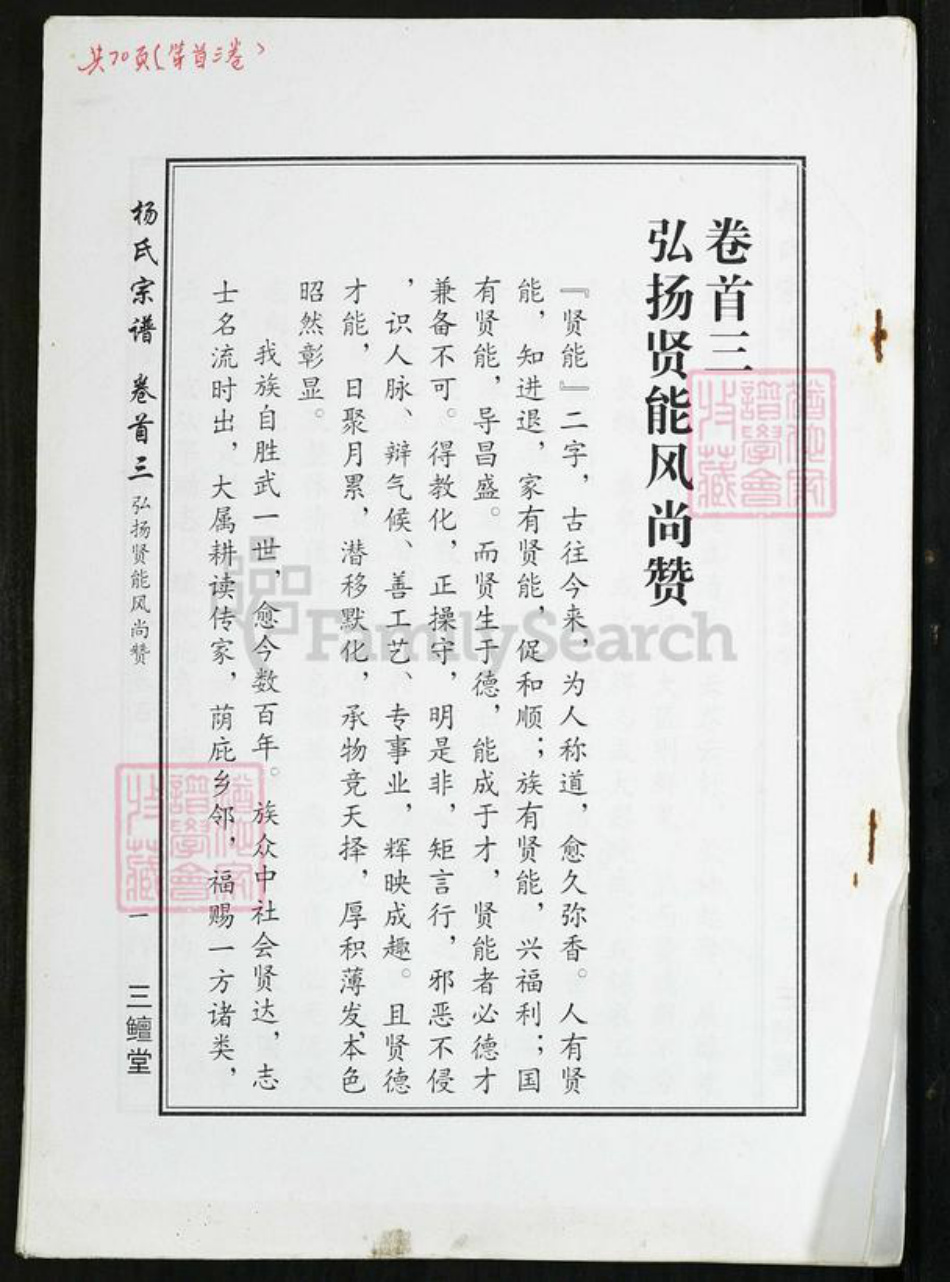 共70页(第首三卷)
卷首三
弘扬贤能风尚赞
『贤能』二字，古往今来，为人称道，愈久弥香。人有贤
能，知进退，家有贤能，促和顺；族有贤能，兴福利；国
有贤能，导昌盛。而贤生于德，能成于才，贤能者必德才
兼备不可。得教化，正操守，明是非，矩言行，邪恶不侵
，识人脉、辩气候、善工艺、专事业，辉映成趣。且贤德
才能，日聚月累，潜移默化，承物竞天择，厚积薄发，本色
昭然彰显。
我族自胜武一世，愈今数百年。族众中社会贤达，志
士名流时出，大属耕读传家，荫庇乡邻，福赐一方诸类，
杨氏宗谱 卷首三 弘扬贤能风尚赞
一
三鱣堂
譜學會
收藏
譜學會
收藏
FamilySearch